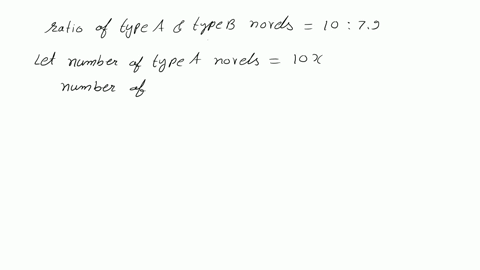 ratio of type A & type B novels = 10 : 7.9
Let number of type A novels = 10x
number of